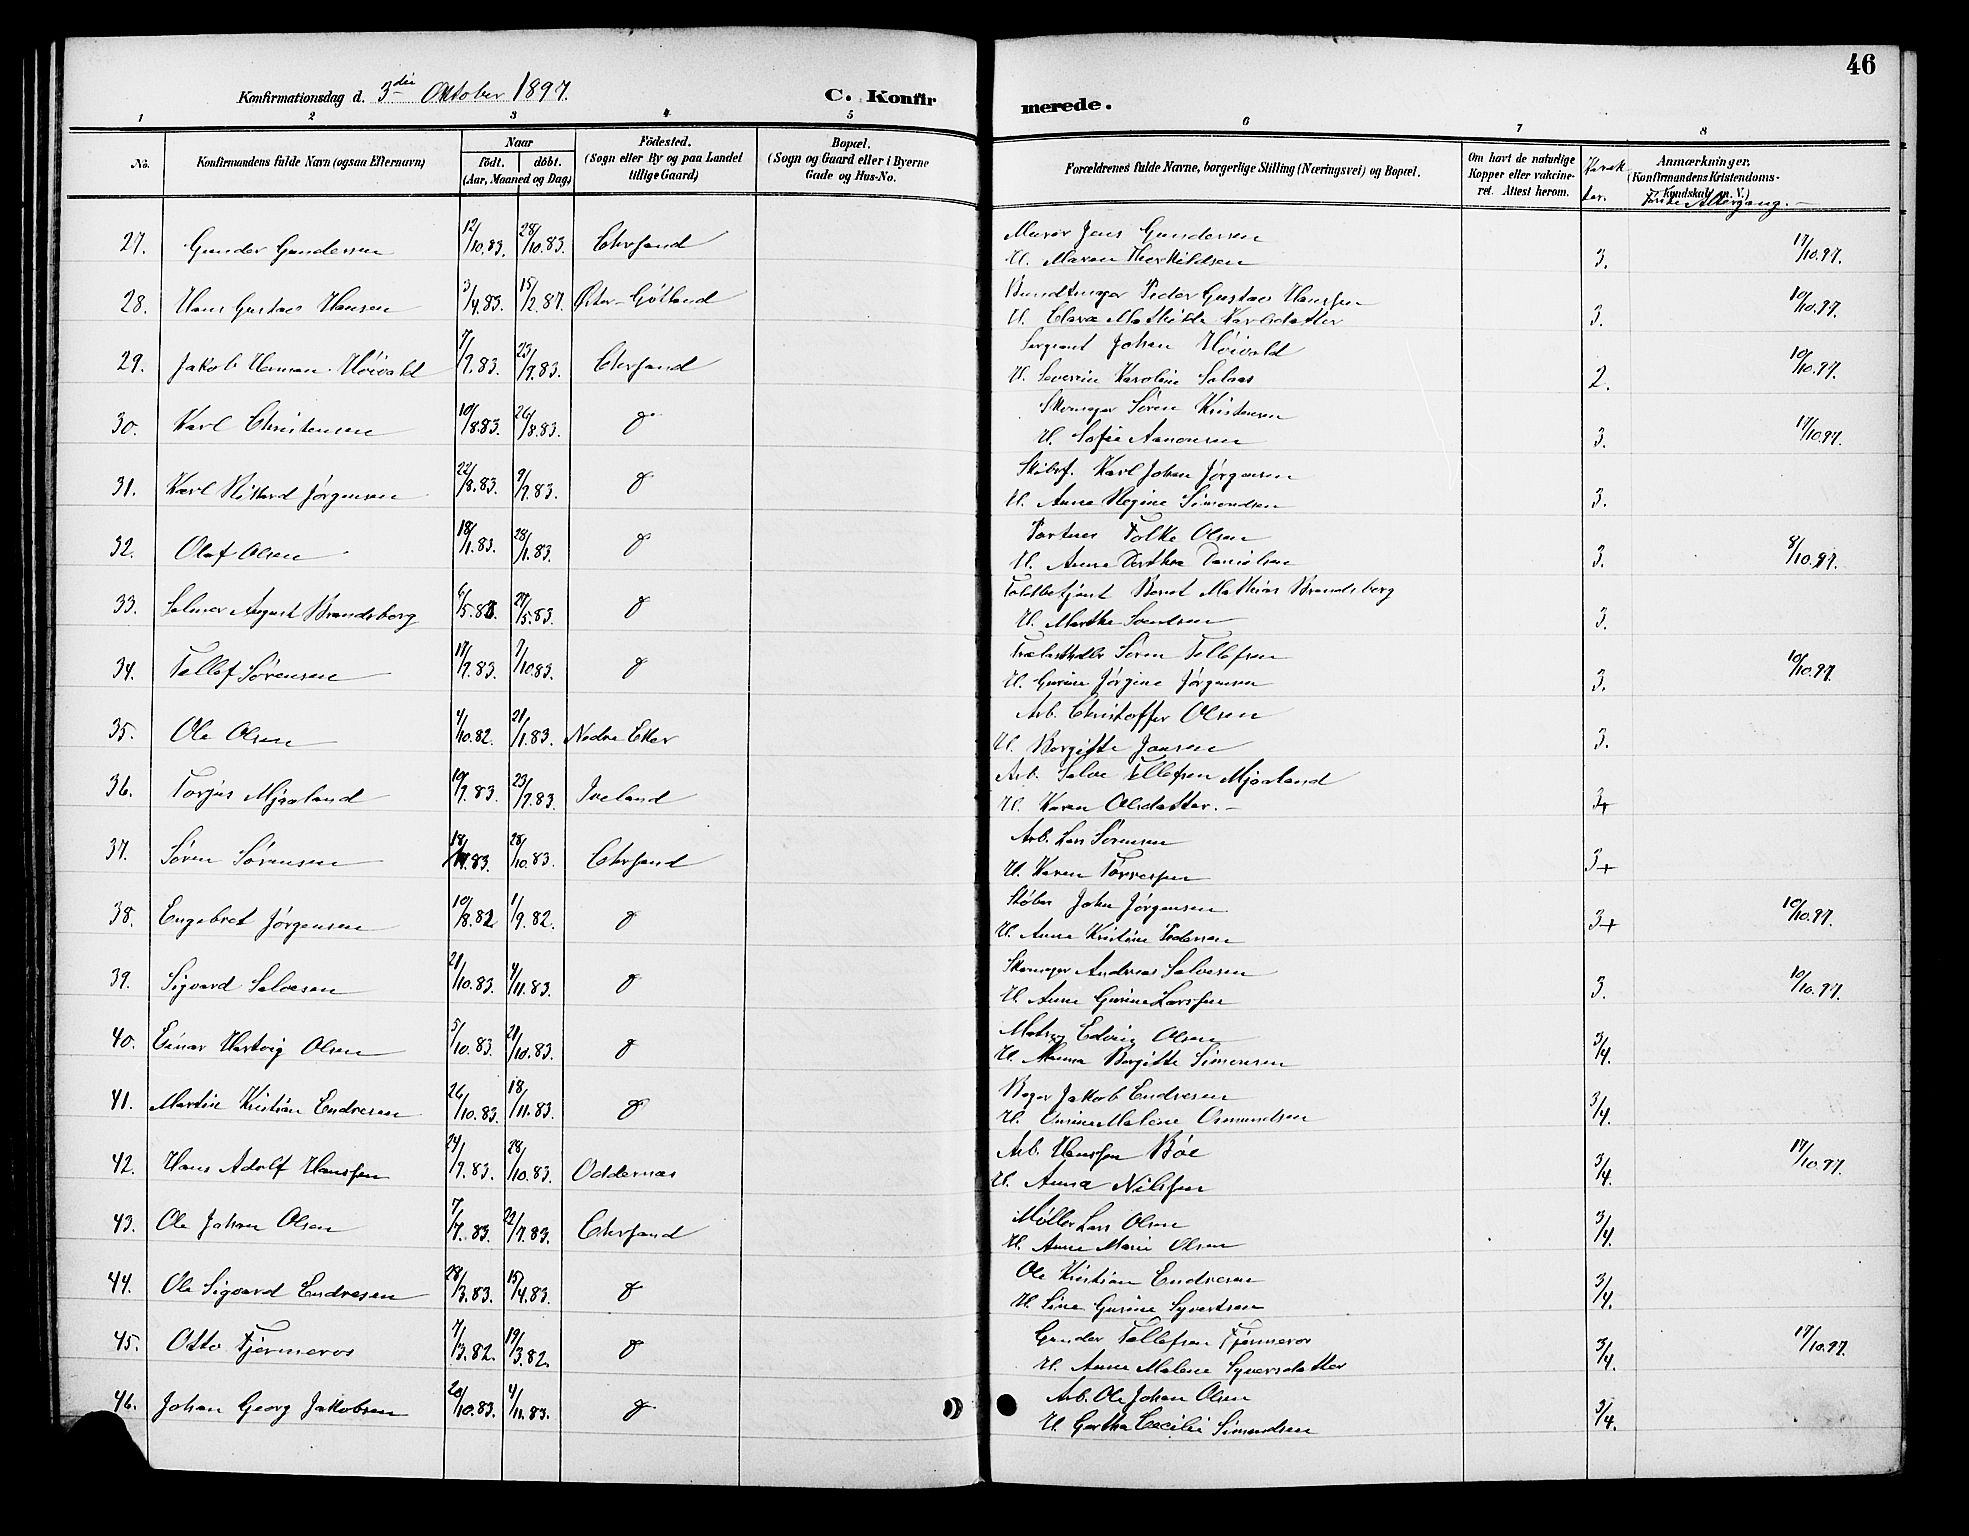 46
Konfirmationsdag d. 3die Oktober 1897.
C. Konfir merede.
1 2 3 4 5 6 7 8
No. Konfirmandens fulde Navn (ogsaa Efternavn) Naar født. døbt. (Aar, Maaned og Dag) Födested. (Sogn eller By og paa Landet tillige Gaard) Bopæl. (Sogn og Gaard eller i Byerne Gade og Hus-No. Forældrenes fulde Navne, borgerlige Stilling (Næringsvei) og Bopæl. Om havt de naturlige Kopper eller vakcineret. Attest herom. Karakter. Anmærkninger. (Konfirmandens Kristendomskundskab m. V.) Første Altergang.
27. Gunder Gundersen 12/10.83. 28/10.83. Chrsand Murer Jens Gundersen
H. Maren Therkildsen 3. 17/10.97.
28. Hans Gustav Hansen 3/4.83. 15/2.87. Øster-Gøtland Bundtmager Peder Gustav Hanssen
H. Clara Mathilde Karlsdatter 3. 10/10.97.
29. Jakob Herman Høivold 7/7.83. 23/9.83. Chrsand Sergeant Johan Høivold
H. Severine Karoline Salaas 2. 10/10.97.
30. Karl Christensen 10/8.83. 26/8.83. do Skomager Søren Kristensen
H. Sofie Aanonsen 3. 17/10.97.
31. Karl Rikard Jørgensen 22/8.83. 9/9.83. do Støbef. Karl Johan Jørgensen
H. Anne Regine Simondsen 3.
32. Olaf Olsen 18/1.83. 28/1.83. do Folke Olsen
H. Anne Dorthea Danielsen 3. 8/10.97.
33. Selmer August Brandsborg 6/5.83. 27/5.83. do Toldbetjent Bernt Mathias Brandsborg
H. Marthe Svendsen 3.
34. Tellef Sørensen 17/9.83. 7/10.83. do Søren Tellefsen
H. Gurine Jørgine Jørgensen 3. 10/10.97.
35. Ole Olsen 4/10.82. 21/1.83. Nedre Eker Arb. Christoffer Olsen
H. Borgitte Jansen 3.
36. Torjus Mjaaland 19/7.83. 23/9.83. Iveland Arb. Salve Tellefsen Mjaaland
H. Karen Olsdatter. 3+
37. Søren Sørensen 18/9.83. 28/10.83. Chrsand Arb. Lars Sørensen
H. Karen Torressen 3+
38. Engebret Jørgensen 10/8.82 1/9.82. do Støber John Jørgensen
H. Anne Kristine Pedersen 3+ 10/10.97.
39. Sigvard Salvesen 21/10.83. 4/11.83. do Skomager Andreas Salvesen
H. Anne Gurine Larssen 3. 10/10.97.
40. Einar Hartvig Olsen 5/10.83. 21/10.83. do Matros Edvig Olsen
H. Borgitte Simonsen 3/4.
41. Martin Kristian Endresen 26/10.83. 18/11.83. do Bager Jakob Endresen
H. Malene Osmundsen 3/4.
42. Hans Adolf Hanssen 24/9.83. 28/10.83. Oddernæs Arb. Hanssen Bøe
H. Anna Nilssen 3/4. 17/10.97.
43. Ole Johan Olsen 7/7.83. 22/7.83. Chrsand Møller Lars Olsen
H. Anne Marie Olsen 3/4.
44. Ole Sigvard Endresen 28/3.83. 15/4.83. do Ole Kristian Endresen
H. Sine Gurine Syvertsen 3/4.
45. Otto Fjermeros 7/3.82. 19/3.82. do Gunder Tellefsen Fjermeros
H. Anne Malene Syversdatter 3/4. 17/10.97.
46. Johan Georg Jakobsen 20/10.83. 4/11.83. do Arb. Ole Johan Olsen
H. Gortha Cecilie Simondsen 3/4.